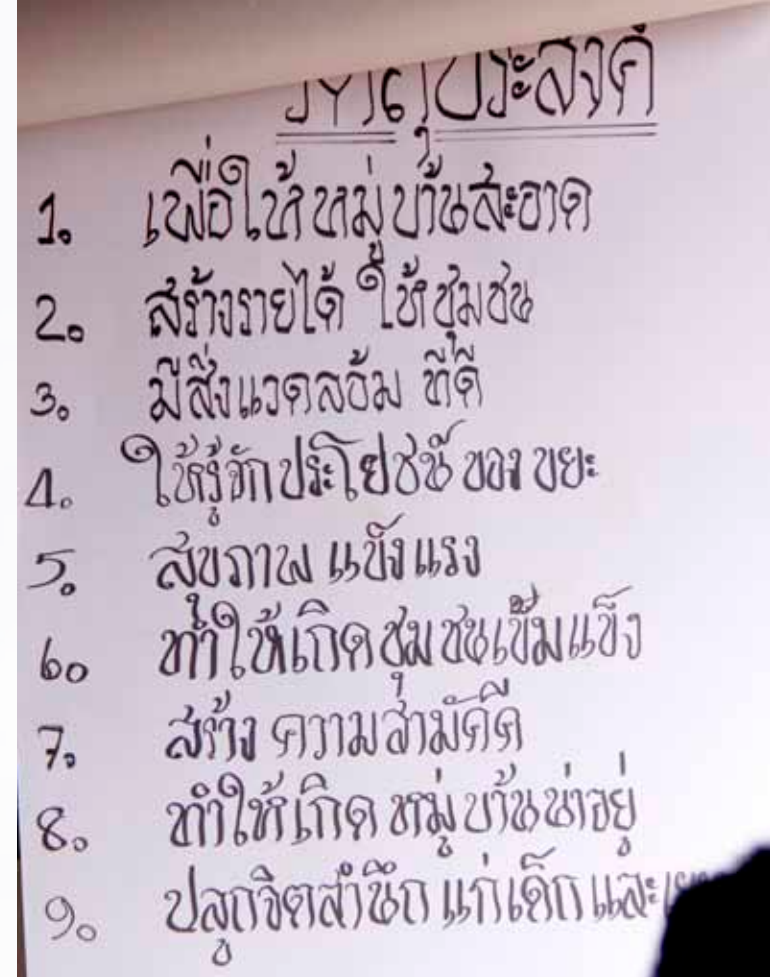 วัตถุประสงค์
1. เพื่อให้หมู่บ้านสะอาด
2. สร้างรายได้ ให้ชุมชน
3. มีสิ่งแวดล้อม ที่ดี
4. ให้รู้จักประโยชน์ ของ ขยะ
5. สุขภาพ แข็งแรง
6. ทำให้เกิดชุมชนเข้มแข็ง
7. สร้าง ความสามัคคี
8. ทำให้เกิด หมู่บ้านน่าอยู่
9. ปลูกจิตสำนึก แก่เด็ก และ